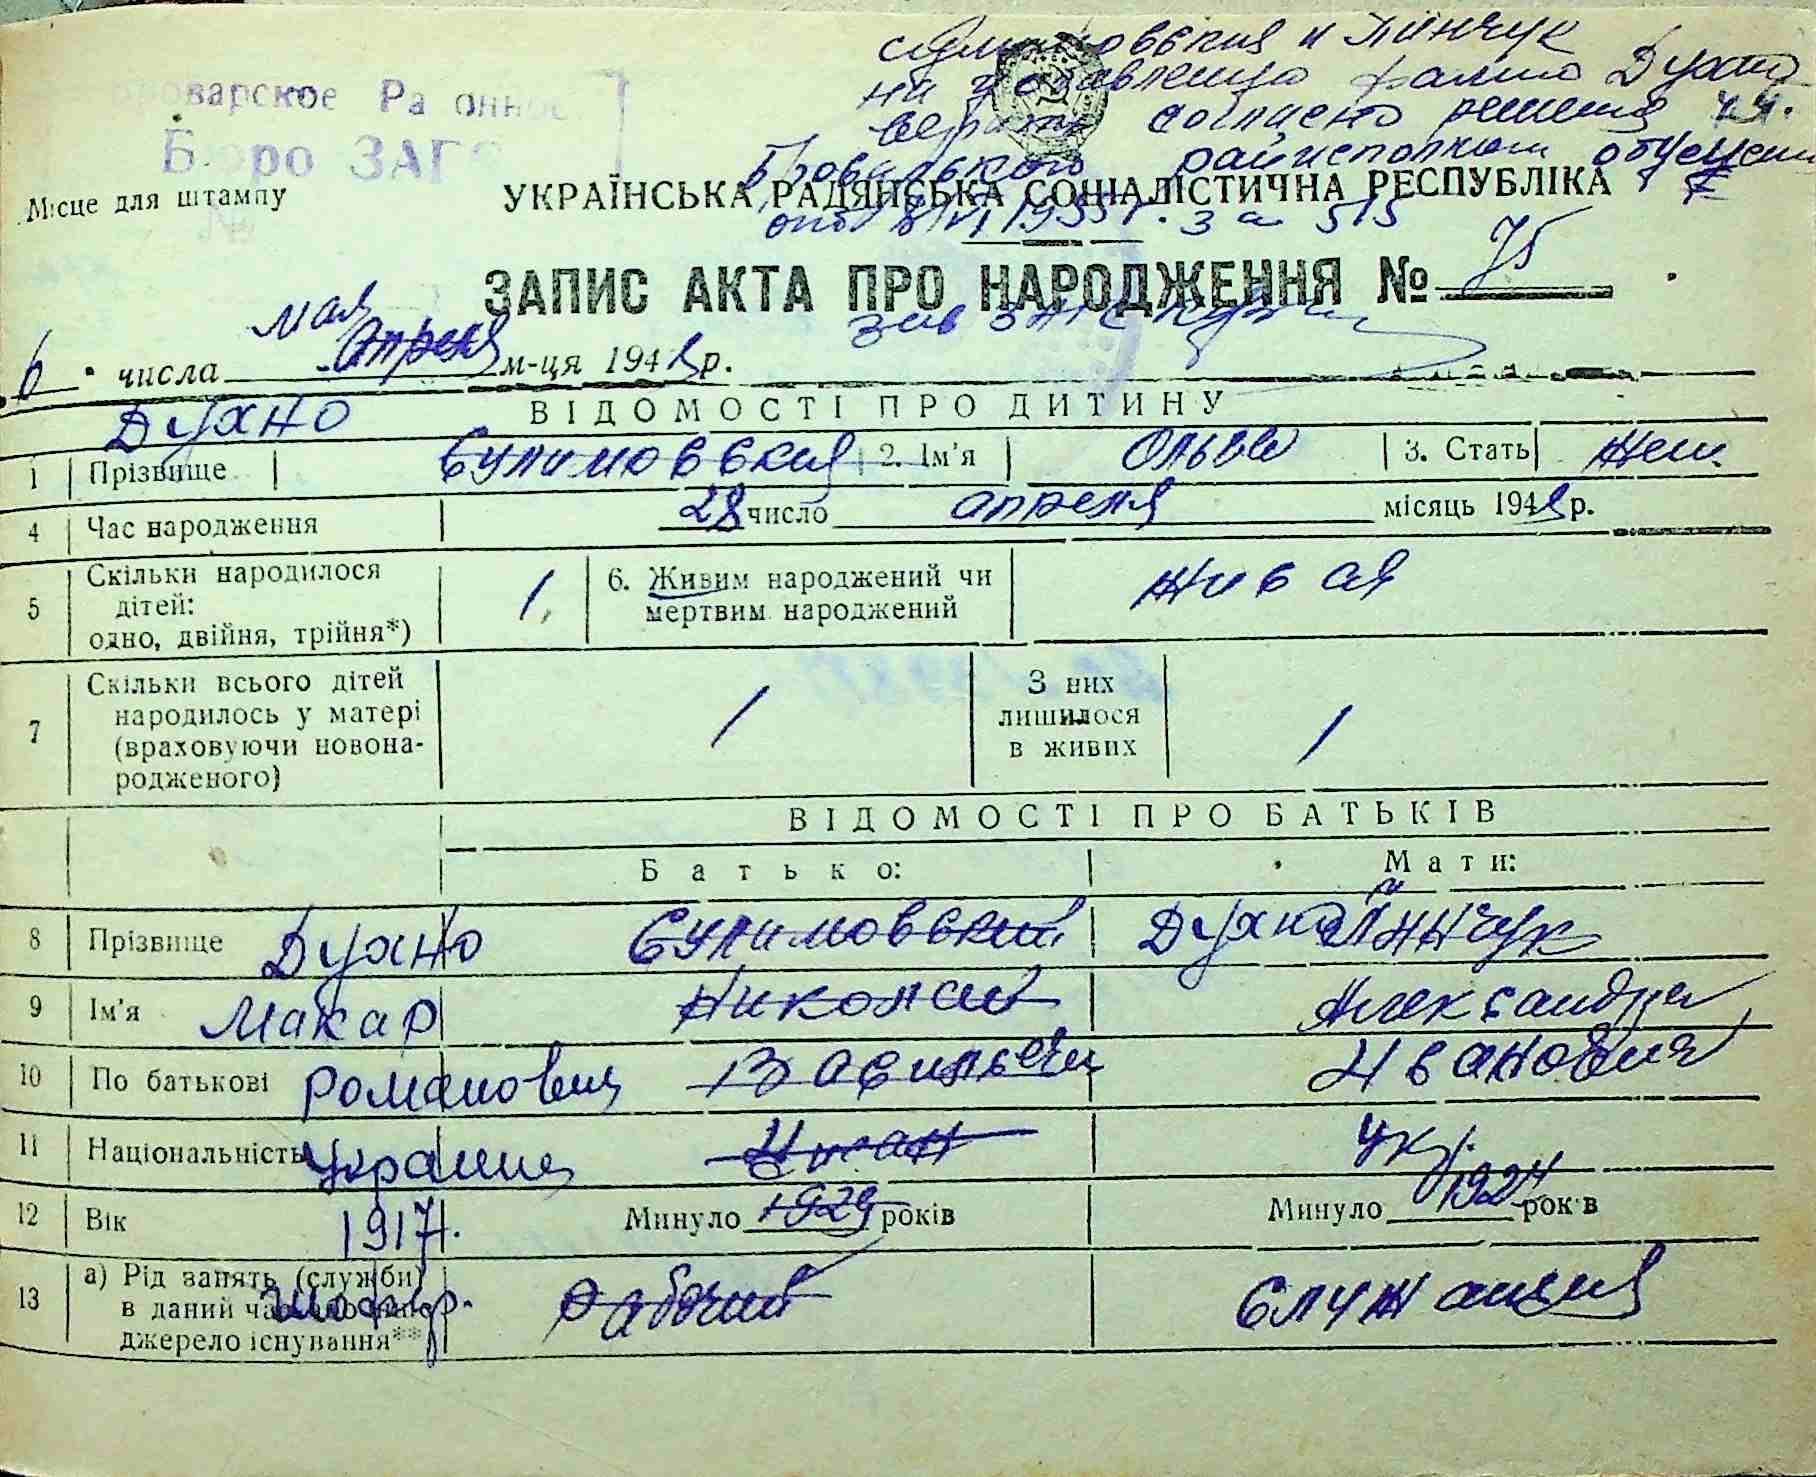 и Пинчук
на
согласно решения
Броварского райисполкома
УКРАЇНСЬКА РАДЯНСЬКА СОЦІАЛІСТИЧНА РЕСПУБЛІКА
за 515
Бюро ЗАГС
Місце для штампу
№
ЗАПИС АКТА ПРО НАРОДЖЕННЯ № 75
зав ЗАГС
мая
6 числа апреля м-ця 1948 р.
ВІДОМОСТІ ПРО ДИТИНУ
Духно
1 Прізвище Сулимовская 2. Ім'я Ольга 3. Стать жен.
4 Час народження 28 число апреля місяць 1948 р.
5 Скільки народилося дітей: одно, двійня, трійня*) 1. 6. Живим народжений чи мертвим народжений живая
7 Скільки всього дітей народилось у матері (враховуючи новонародженого) 1 З них лишилося в живих 1
ВІДОМОСТІ ПРО БАТЬКІВ
Батько: Мати:
8 Прізвище Духно Сулимовский Духно Пинчук
9 Ім'я Макар Николай Александра
10 По батькові Романович Васильевич Ивановна
11 Національність Украинец Цыган Укр.
12 Вік 1917 г. Минуло 1929 років Минуло 1924 років
13 а) Рід занять (служби) в даний час або інше джерело існування**) Шофер. Рабочий Служащая